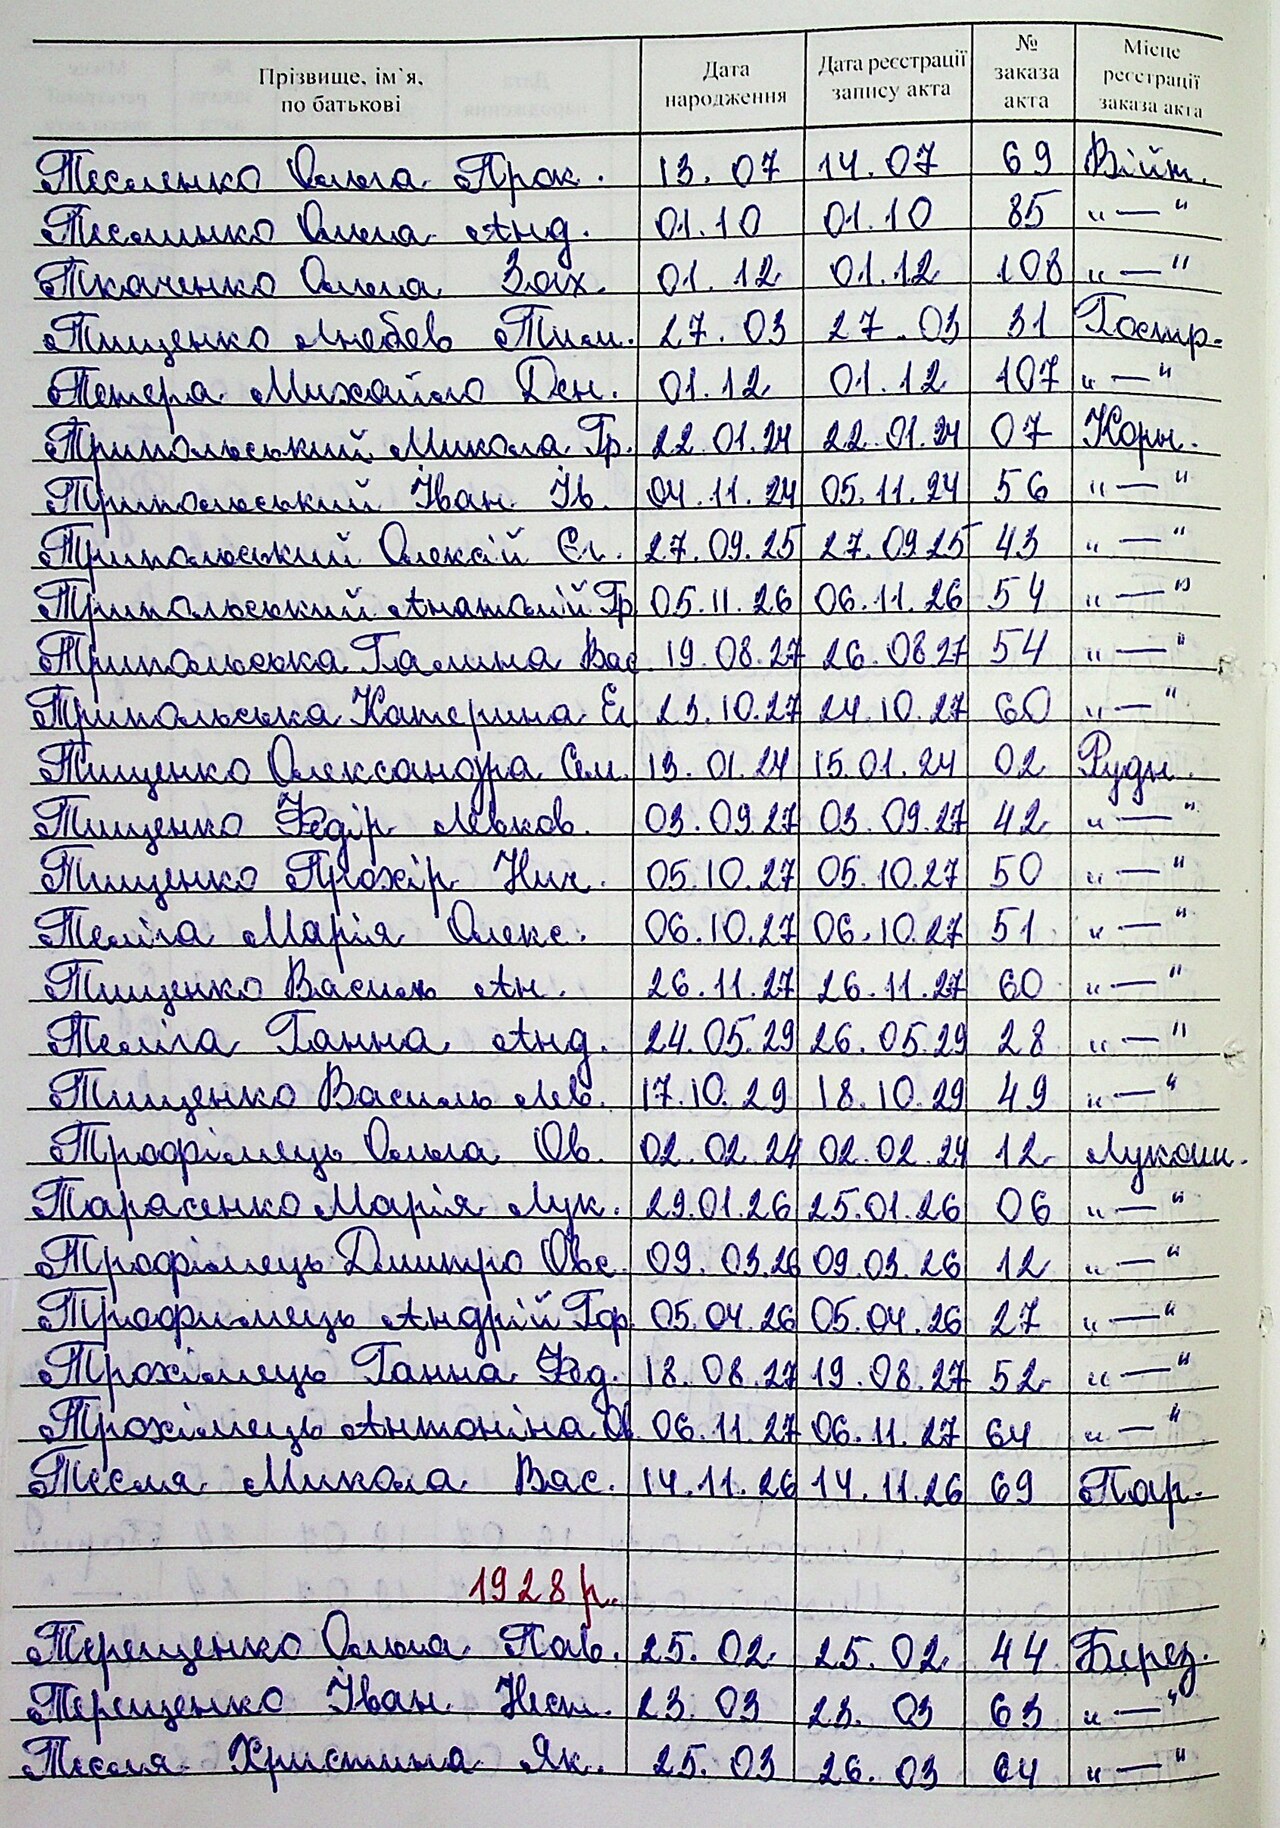 Прізвище, ім`я, по батькові Дата народження Дата реєстрації запису акта № заказа акта Місце реєстрації заказа акта
Тесленко Ольга Прок. 13.07 14.07 69 Війт.
Теслинко Ольга Анд. 01.10 01.10 85 "—"
Ткаченко Ольга Зах. 01.12 01.12 108 "—"
Тищенко Любов Тим. 27.03 27.03 31 Гостр.
Тетера Михайло Ден. 01.12 01.12 107 "—"
Трипольський Микола Гр. 22.01.24 22.01.24 07 Корн.
Трипольський Іван Ів. 04.11.24 05.11.24 56 "—"
Трипольський Олексій Єл. 27.09.25 27.09.25 43 "—"
Трипольський Анатолій Гр 05.11.26 06.11.26 54 "—"
Трипольська Галина Вас 19.08.27 26.08.27 54 "—"
Трипольська Катерина Єл 23.10.27 24.10.27 60 "—"
Тищенко Олександра Сем. 13.01.24 15.01.24 02 Рудн.
Тищенко Федір Левков. 03.09.27 03.09.27 42 "—"
Тищенко Прохір Нич. 05.10.27 05.10.27 50 "—"
Теліга Марія Олекс. 06.10.27 06.10.27 51 "—"
Тищенко Василь Ан. 26.11.27 26.11.27 60 "—"
Теліга Ганна Анд. 24.05.29 26.05.29 28 "—"
Тищенко Василь Лев. 17.10.29 18.10.29 49 "—"
Трофімець Ольга Ов. 02.02.24 02.02.24 12 Лукаш.
Тарасенко Марія Лук. 29.01.26 25.01.26 06 "—"
Трофімець Дмитро Овс. 09.03.26 09.03.26 12 "—"
Трофимець Андрій Гор. 05.04.26 05.04.26 27 "—"
Трохімець Ганна Фед. 18.08.27 19.08.27 52 "—"
Трохімець Антоніна Ов 06.11.27 06.11.27 64 "—"
Тесля Микола Вас. 14.11.26 14.11.26 69 Пар.
1928 р.
Терещенко Ольга Пав. 25.02 25.02 44 Берез.
Терещенко Іван Нест. 23.03 23.03 63 "—"
Тесля Христина Як. 25.03 26.03 64 "—"